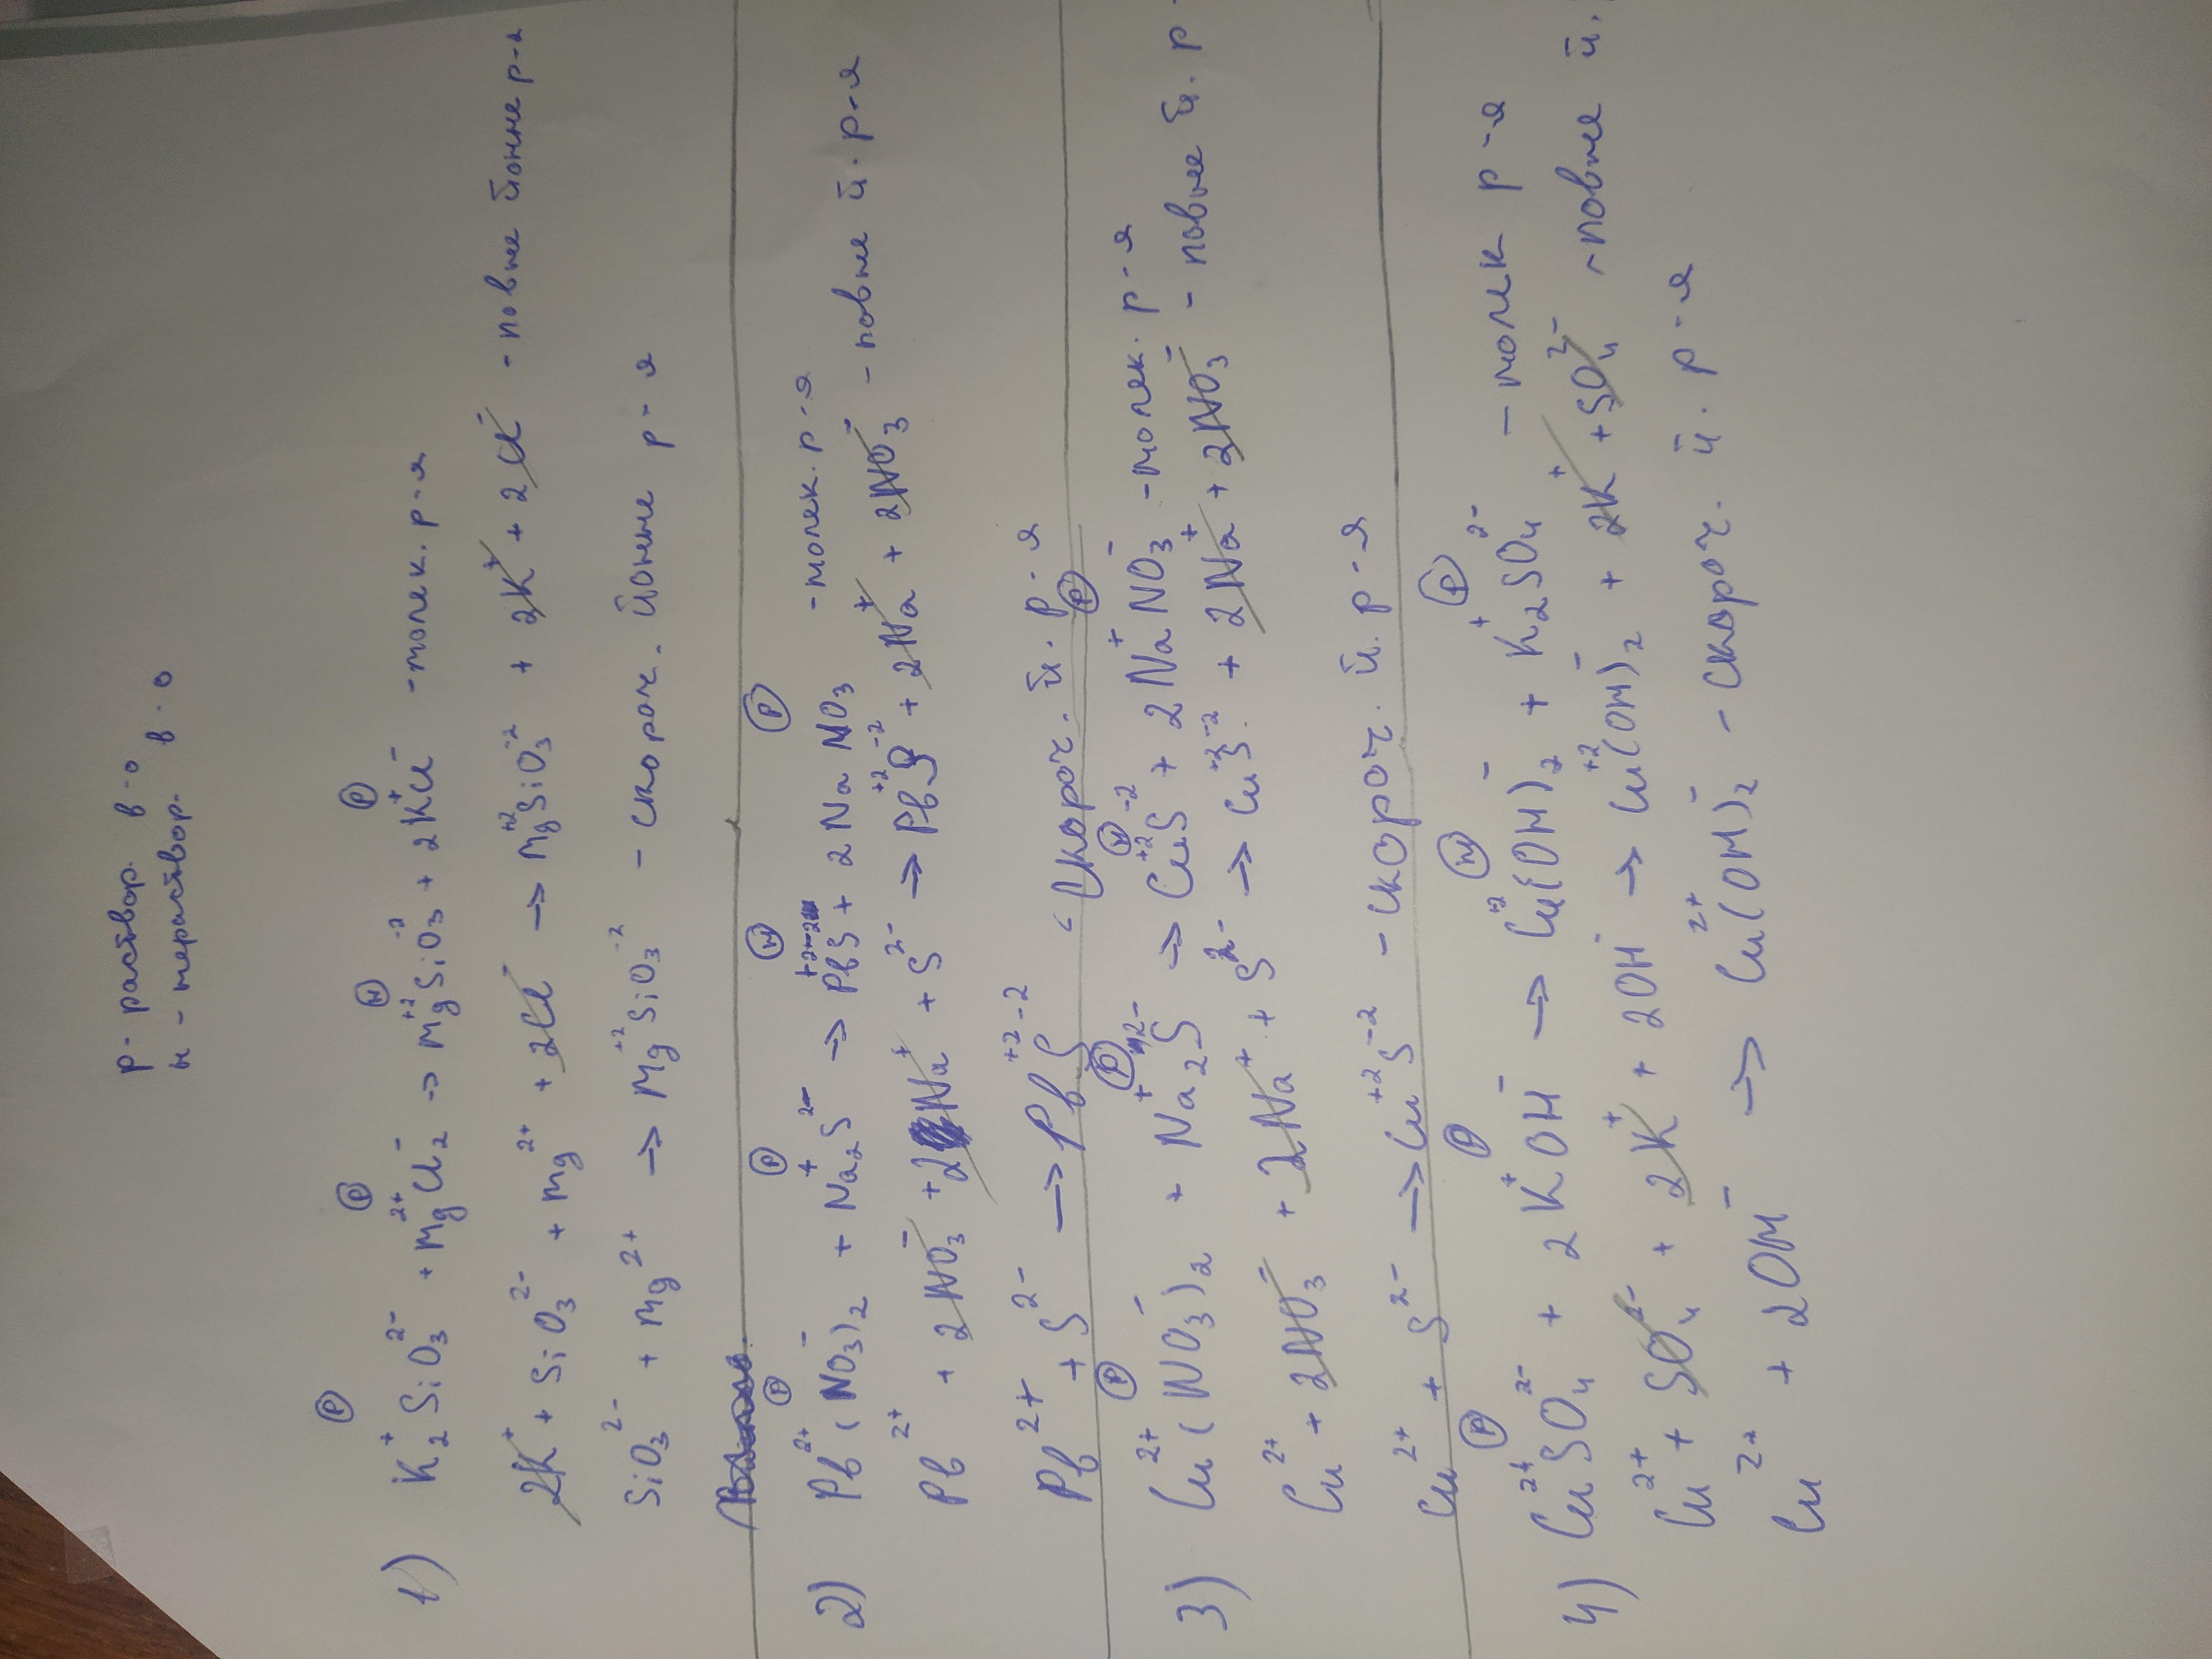 р - раствор. в-о
н - нераствор. в-о
1) K₂⁺SiO₃²⁻ (р) + Mg²⁺Cl₂⁻ (р) → Mg⁺²SiO₃⁻² (н) + 2K⁺Cl⁻ (р) - молек. р-я
2K⁺ + SiO₃²⁻ + Mg²⁺ + 2Cl⁻ → Mg⁺²SiO₃⁻² + 2K⁺ + 2Cl⁻ - повне йонне р-я
SiO₃²⁻ + Mg²⁺ → Mg⁺²SiO₃⁻² - скороч. йонне р-я
2) Pb²⁺(NO₃⁻)₂ (р) + Na₂⁺S²⁻ (р) → PbS (н) + 2NaNO₃ (р) - молек. р-я
Pb²⁺ + 2NO₃⁻ + 2Na⁺ + S²⁻ → Pb⁺²S⁻² + 2Na⁺ + 2NO₃⁻ - повне й. р-я
Pb²⁺ + S²⁻ → Pb⁺²S⁻² - скороч. й. р-я
3) Cu²⁺(NO₃⁻)₂ (р) + Na₂⁺S²⁻ (р) → Cu⁺²S⁻² (н) + 2Na⁺NO₃⁻ (р) - молек. р-я
Cu²⁺ + 2NO₃⁻ + 2Na⁺ + S²⁻ → Cu⁺²S⁻² + 2Na⁺ + 2NO₃⁻ - повне й. р
Cu²⁺ + S²⁻ → Cu⁺²S⁻² - скороч. й. р-я
4) Cu²⁺SO₄²⁻ (р) + 2K⁺OH⁻ (р) → Cu⁺²(OH⁻)₂ (н) + K₂⁺SO₄²⁻ (р) - молек р-я
Cu²⁺ + SO₄²⁻ + 2K⁺ + 2OH⁻ → Cu⁺²(OH⁻)₂ + 2K⁺ + SO₄²⁻ - повне й.
Cu²⁺ + 2OH⁻ → Cu²⁺(OH⁻)₂ - скороч. й. р-я